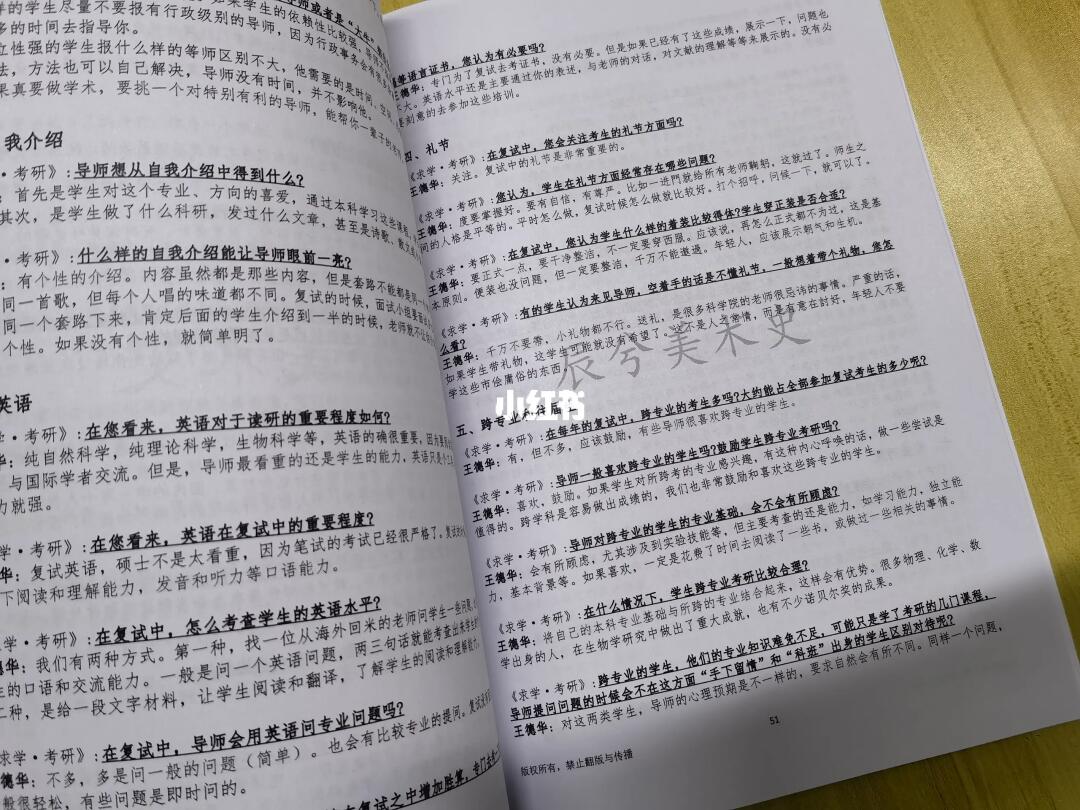 样的学生尽量不要报有行政级别的导师，因为行政事务会有
多的时间去指导你。
立性强的学生报什么样的等师区别不大，他需要的是时间、空
法，方法也可以自己解决，导师没有时间，并不影响他。
果真要做学术，要挑一个对特别有利的导师，能帮你一辈子的
我介绍
·考研》：导师想从自我介绍中得到什么？
：首先是学生对这个专业、方向的喜爱，通过本科学习这些课程
其次，是学生做了什么科研，发过什么文章，甚至是诗歌、散文
·考研》：什么样的自我介绍能让导师眼前一亮？
：有个性的介绍。内容虽然都是那些内容，但是套路不能都是同一
同一首歌，但每个人唱的味道都不同。复试的时候，面试小组要面
同一个套路下来，肯定后面的学生介绍到一半的时候，老师就不
个性。如果没有个性，就简单明了。
英语
求学·考研》：在您看来，英语对于读研的重要程度如何？
华：纯自然科学，纯理论科学，生物科学等，英语的确很重要，因为
与国际学者交流。但是，导师最看重的还是学生的能力，英语只是个工
力就强。
求学·考研》：在您看来，英语在复试中的重要程度？
华：复试英语，硕士不是太看重，因为笔试的考试已经很严格了。复试
下阅读和理解能力，发音和听力等口语能力。
求学·考研》：在复试中，怎么考查学生的英语水平？
华：我们有两种方式。第一种，找一位从海外回米的老师问学生一些问题，
生的口语和交流能力。一般是问一个英语问题，两三句话就能考查出来学生的
二种，是给一段文字材料，让学生阅读和翻译，了解学生的阅读和理解能力
求学·考研》：在复试中，导师会用英语问专业问题吗？
华：不多，多是问一般的问题（简单）。也会有比较专业的提问。复试
般很轻松，有些问题是即时问的。
在复试之中增加胜算，专门去考
等语言证书，您认为有必要吗？
王德华：专门为了复试去考证书，没有必要。但是如果已经有了这些成绩，展示一下，问题也
不大。英语水平还是主要通过你的表述，与老师的对话，对文献的理解等等来展示的。没有必
要刻意的去参加这些培训。
四、礼节
《求学·考研》：在复试中，您会关注考生的礼节方面吗？
王德华：关注。复试中的礼节是非常重要的。
《求学·考研》：您认为，学生在礼节方面经常存在哪些问题？
王德华：度要掌握好。要有自信，有尊严。比如一进門就给所有老师鞠躬，这就过了。师生之
间的人格是平等的。平时怎么做，复试时候怎么做就比较好。打个招呼，问候一下，就可以了。
《求学·考研》：在复试中，您认为学生什么样的着装比较得体？学生穿正装是否合适？
王德华：要正式一点，要干净整洁，不一定要穿西服。应该说，再怎么正式都不为过，这是基
本原则。便装也没问题，但一定要整洁，千万不能邋遢。年轻人，应该展示朝气和生机。
《求学·考研》：有的学生认为来见导师，空着手的话是不懂礼节，一般想着带个礼物，您怎
么看？
王德华：千万不要带，小礼物都不行。送礼，是很多科学院的老师很忌讳的事情。严重的话，
如果学生带礼物，这学生可能就没有希望了。这不是人之常情，而是有意在讨好，年轻人不要
学这些市侩庸俗的东西。
辰兮美术史
小红书
五、跨专业和往届生
《求学·考研》：在每年的复试中，跨专业的考生多吗？大约能占全部参加复试考生的多少呢？
王德华：有，但不多，应该鼓励，有些导师很喜欢跨专业的学生。
《求学·考研》：导师一般喜欢跨专业的学生吗？鼓励学生跨专业考研吗？
王德华：喜欢，鼓励。如果学生对所跨考的专业感兴趣，有这种内心呼唤的话，做一些尝试是
值得的。跨学科是容易做出成绩的，我们也非常鼓励和喜欢这些跨专业的学生。
《求学·考研》：导师对跨专业的学生的专业基础，会不会有所顾虑？
王德华：会有所顾虑，尤其涉及到实验技能等，但主要考查的还是能力，如学习能力，独立能
力，基本背景等。如果喜欢，一定是花费了时间去阅读了一些书，或做过一些相关的事情。
《求学·考研》：在什么情况下，学生跨专业考研比较合理？
王德华：将自己的本科专业基础与所跨的专业结合起来，这样会有优势。很多物理、化学、数
学出身的人，在生物学研究中做出了重大成就，也有不少诺贝尔奖的成果。
《求学·考研》：跨专业的学生，他们的专业知识难免不足，可能只是学了考研的几门课程，
导师提问问题的时候会不在这方面“手下留情”和“科班”出身的学生区别对待呢？
王德华：对这两类学生，导师的心理预期是不一样的，要求自然会有所不同。同样一个问题，
51
版权所有，禁止翻版与传播